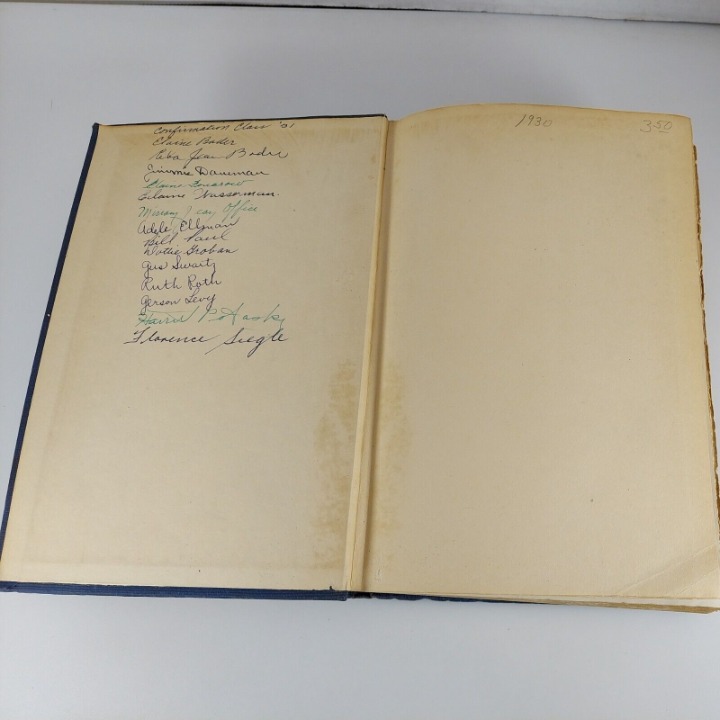 Confirmation Class '31
Elaine Bader
Reba Jean Bader
Jimmie Dauerman
Elaine
Elaine Wasserman
Murray Jay Office
Adele Ellman
Bill Paul
Dottie Groban
Gus Swartz
Ruth Roth
Gerson Levy
Harold
Florence Siegle
1930
3.50